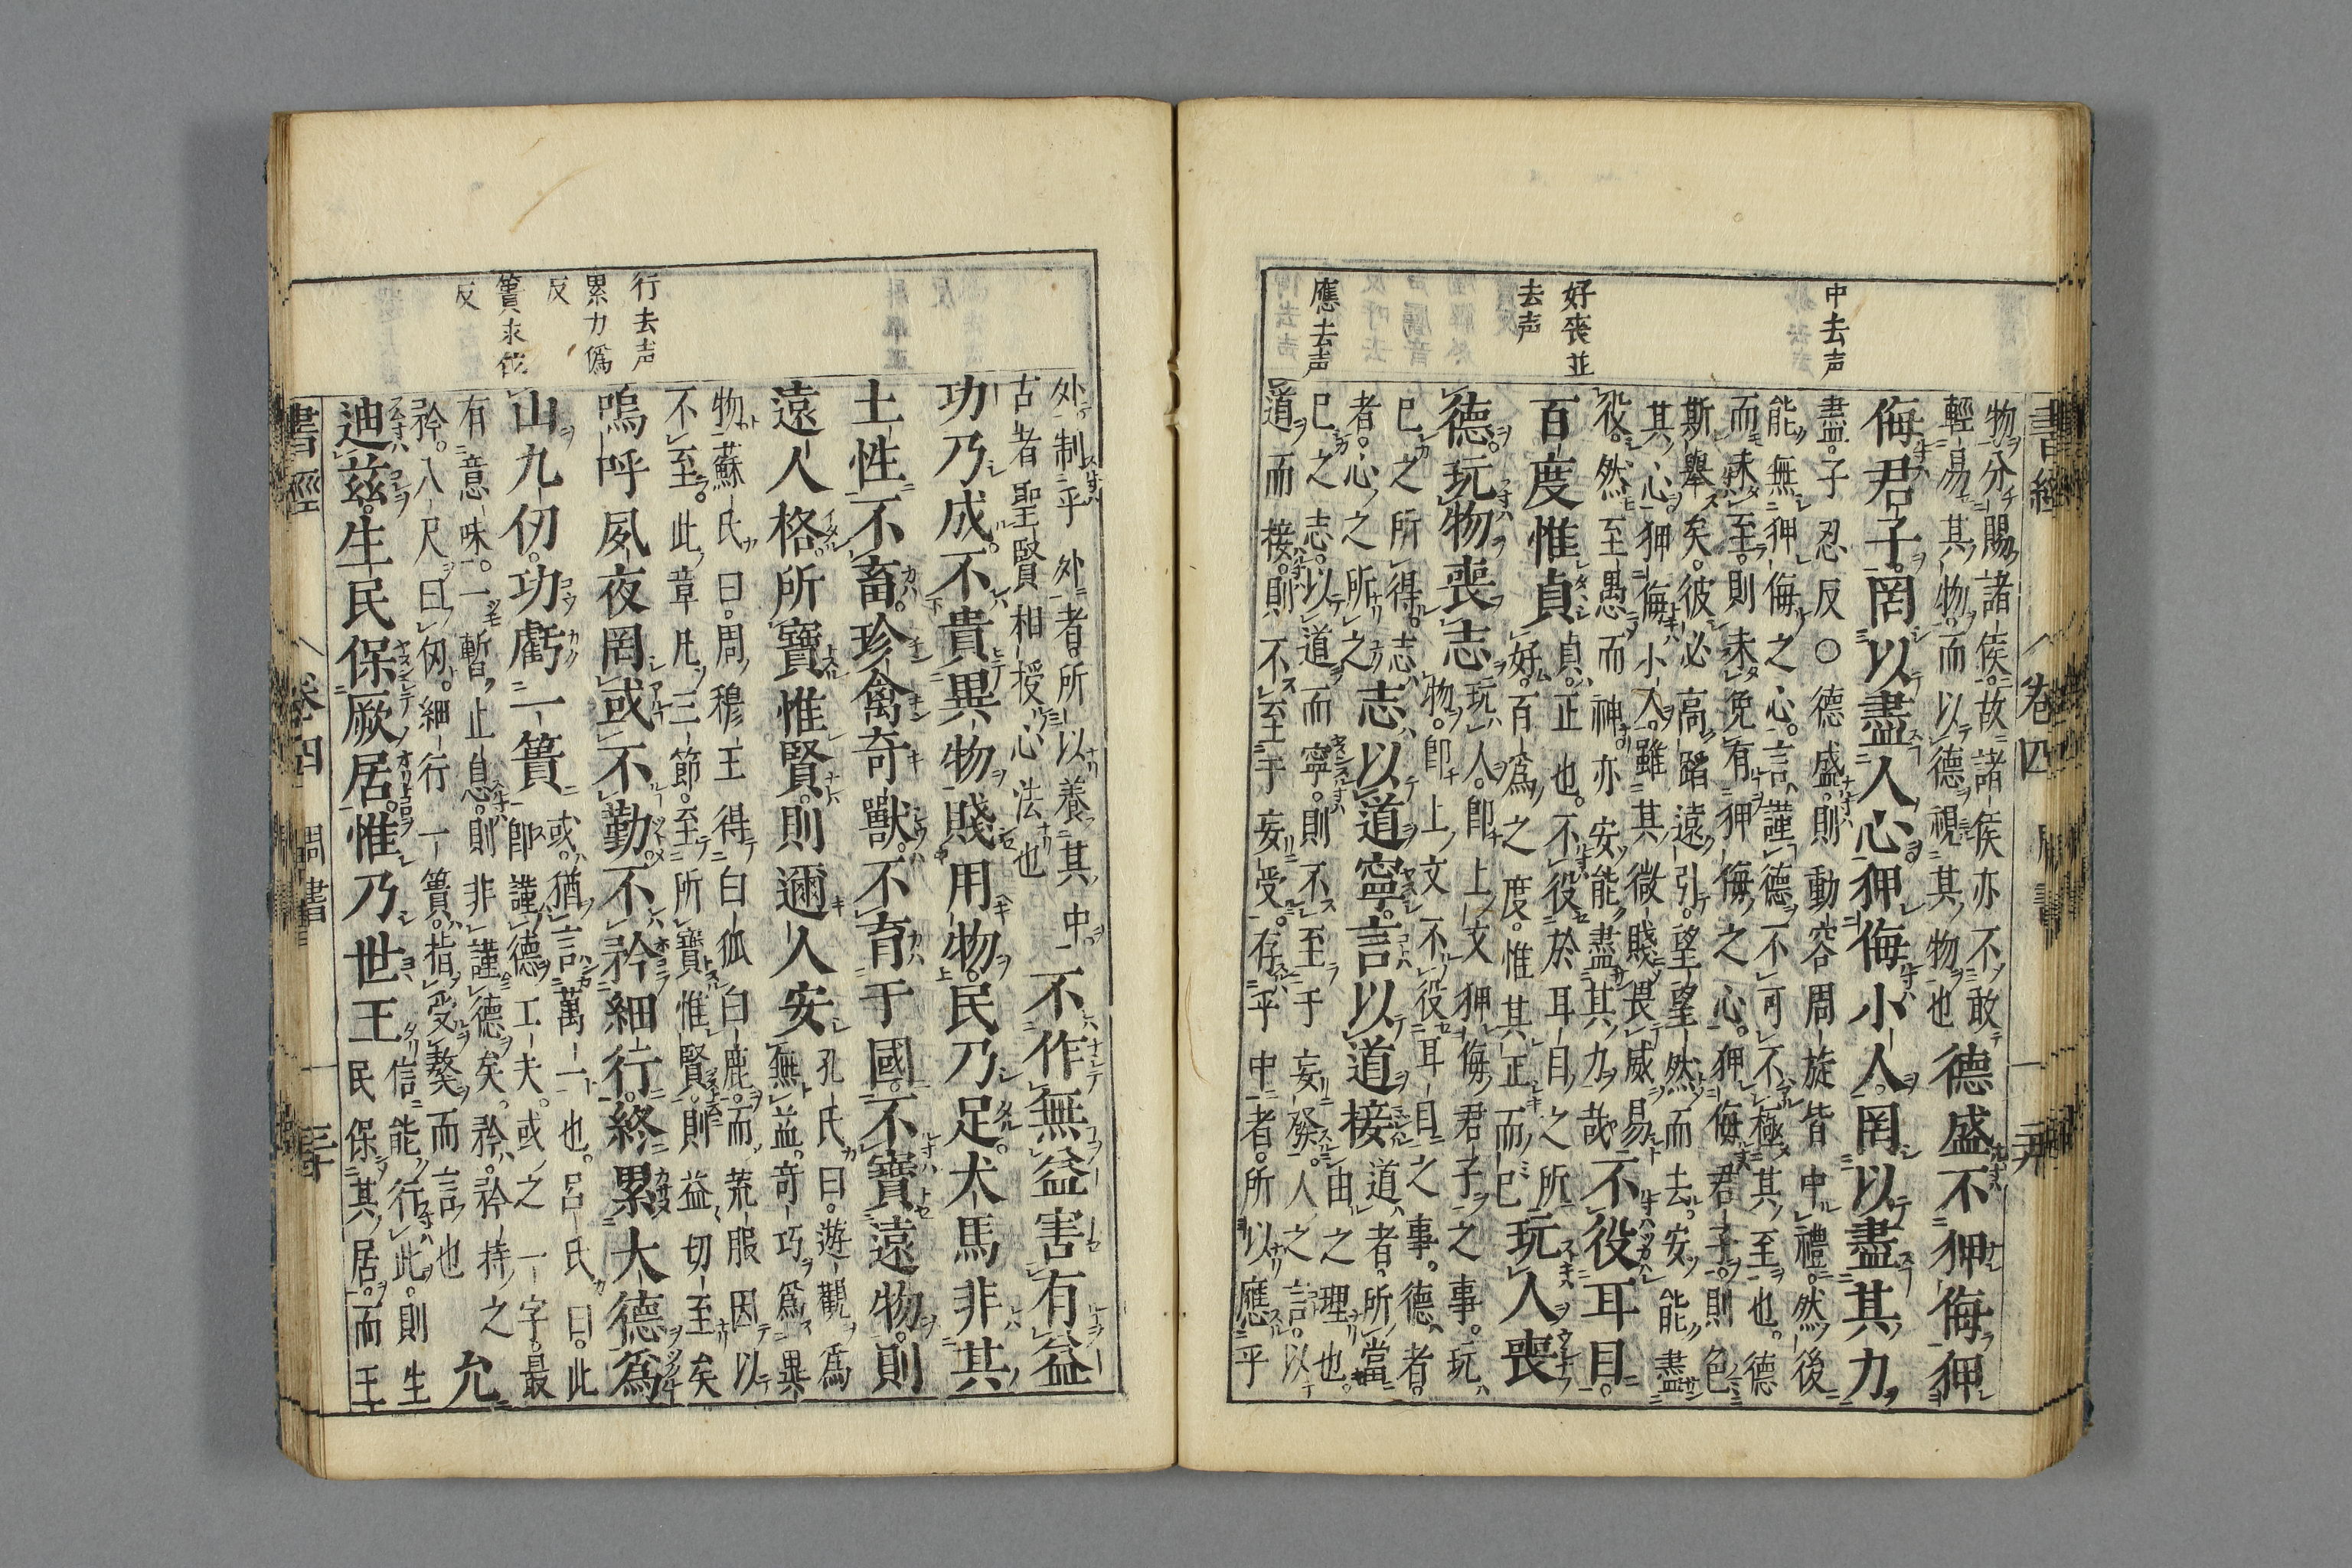 書經 卷四 周書
中去声
好喪並
去声
應去声
物分賜諸侯故諸侯亦不敢
輕易其物而以德視其物也
德盛不狎侮狎
侮君子罔以盡人心狎侮小人罔以盡其力
盡子忍反○德盛則動容周旋皆中禮然後
能無狎侮之心言謹德不可不極其至也德
而未至則未免有狎侮之心狎侮君子則色
斯舉矣彼必高蹈遠引望望然而去安能盡
其心狎侮小人雖其微賤畏威易
役然至愚而神亦安能盡其力哉
不役耳目
百度惟貞
貞正也不役於耳目之所
好百爲之度惟其正而已
玩人喪
德玩物喪志
玩人即上文狎侮君子之事玩
物即上文不役耳目之事德者
己之所得志
者心之所之
志以道寧言以道接
道者所當
由之理也
己之志以道而寧則不至于妄發人之言以
道而接則不至于妄受存乎中者所以應乎
行去声
累力僞
反
簣求位
反
外制乎外者所以養其中
古者聖賢相授心法也
不作無益害有益
功乃成不貴異物賤用物民乃足犬馬非其
土性不畜珍禽奇獸不育于國不寶遠物則
遠人格所寶惟賢則邇人安
孔氏曰遊觀爲
無益奇巧爲異
物蘇氏曰周穆王得白狐白鹿而荒服因以
不至此章凡三節至所寶惟賢則益切至矣
嗚呼夙夜罔或不勤不矜細行終累大德爲
山九仞功虧一簣
或猶言萬一也呂氏曰此
即謹德工夫或之一字最
有意味一暫止息則非謹德矣矜矜持之
矜八尺曰仞細行一簣指受獒而言也
允
迪兹生民保厥居惟乃世王
信能行此則生
民保其居而王
書經 卷四 周書 三十